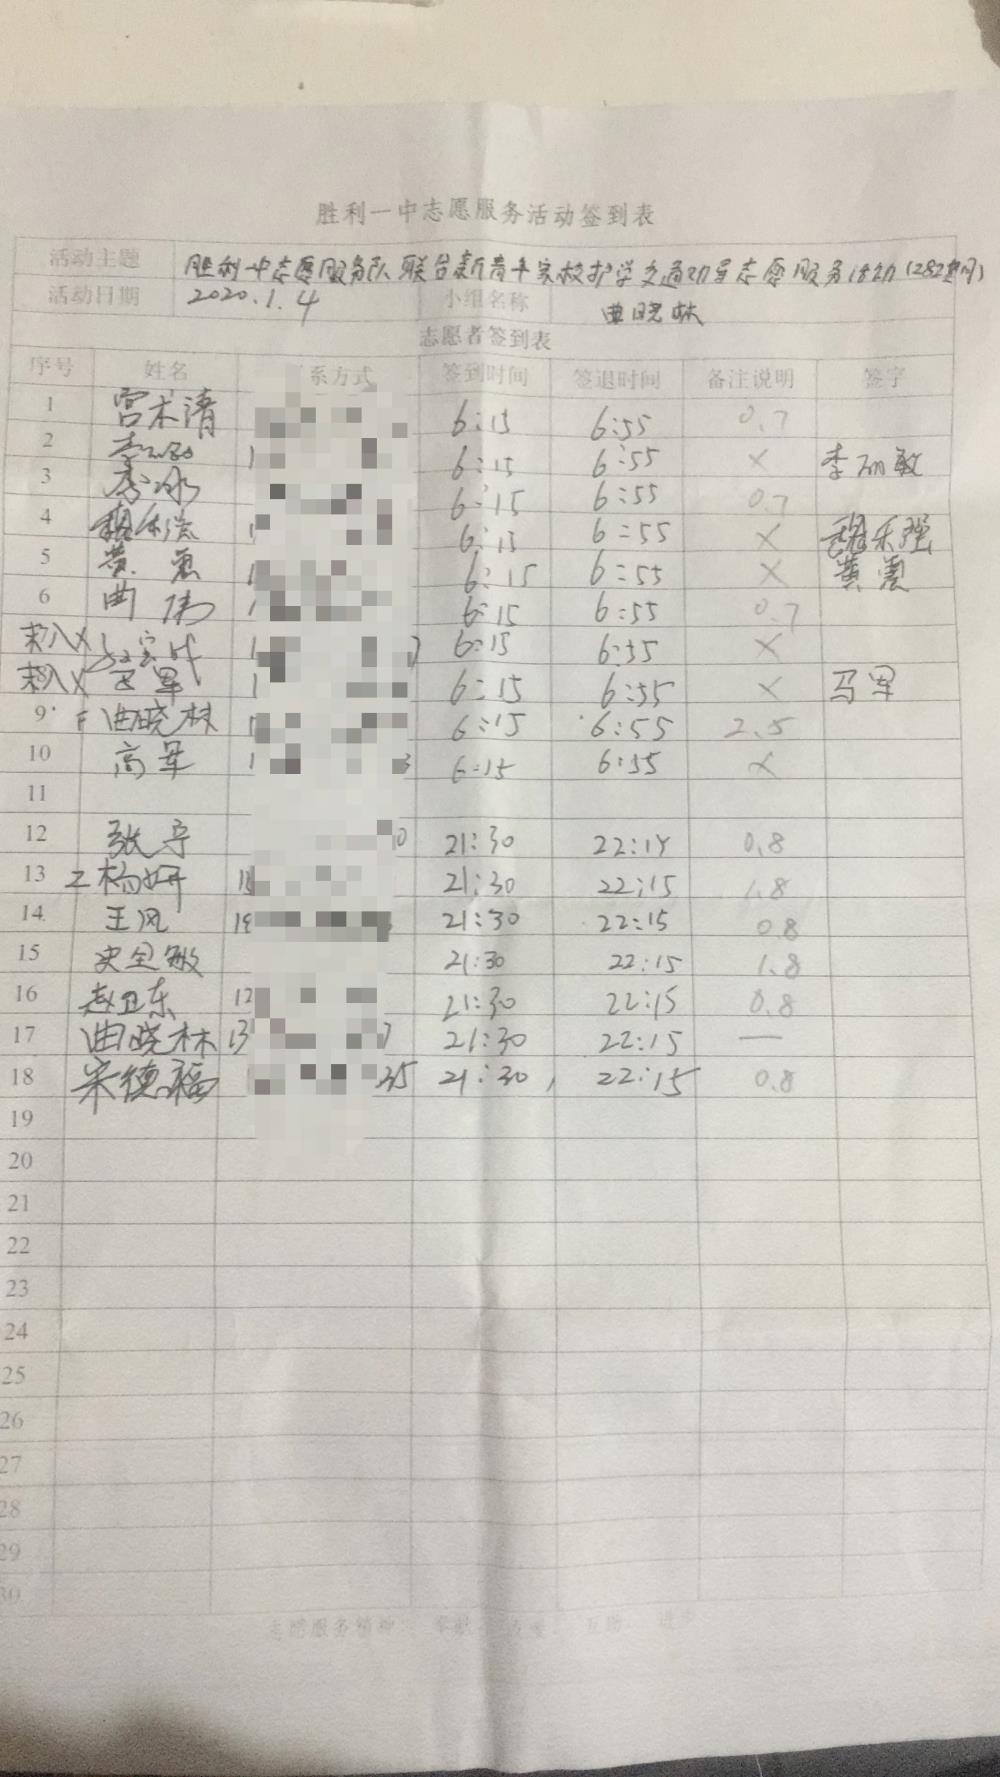 胜利一中志愿服务活动签到表
活动主题 胜利一中志愿服务队联合新青年家校护学交通劝导志愿服务活动(282期)
活动日期 2020.1.4 小组名称 曲晓林
志愿者签到表
序号 姓名 系方式 签到时间 签退时间 备注说明 签字
1 宫术清 6:15 6:55 0.7
2 6:15 6:55 × 李丽敏
3 李冰 6:15 6:55 0.7
4 6:15 6:55 ×
5 黄 6:15 6:55 × 黄
6 曲伟 6:15 6:55 0.7
未入× 6:15 6:55 ×
未入× 马军 6:15 6:55 × 马军
9 曲晓林 6:15 6:55 2.5
10 高军 3 6:15 6:55 ×
11
12 张宁 0 21:30 22:15 0.8
13 杨妍 18 21:30 22:15 1.8
14 王风 21:30 22:15 0.8
15 史全敏 21:30 22:15 1.8
16 赵卫东 21:30 22:15 0.8
17 曲晓林 13 7 21:30 22:15 —
18 宋德福 35 21:30 22:15 0.8
19
20
21
22
23
24
25
26
27
28
29
30
志愿服务精神： 奉献 友爱 互助 进步